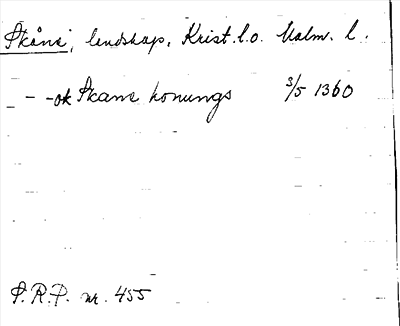 Skåne, landskap, Krist. l. o. Malm. l.
- - ok Skane konungs 3/5 1360
P.R.P. nr. 455